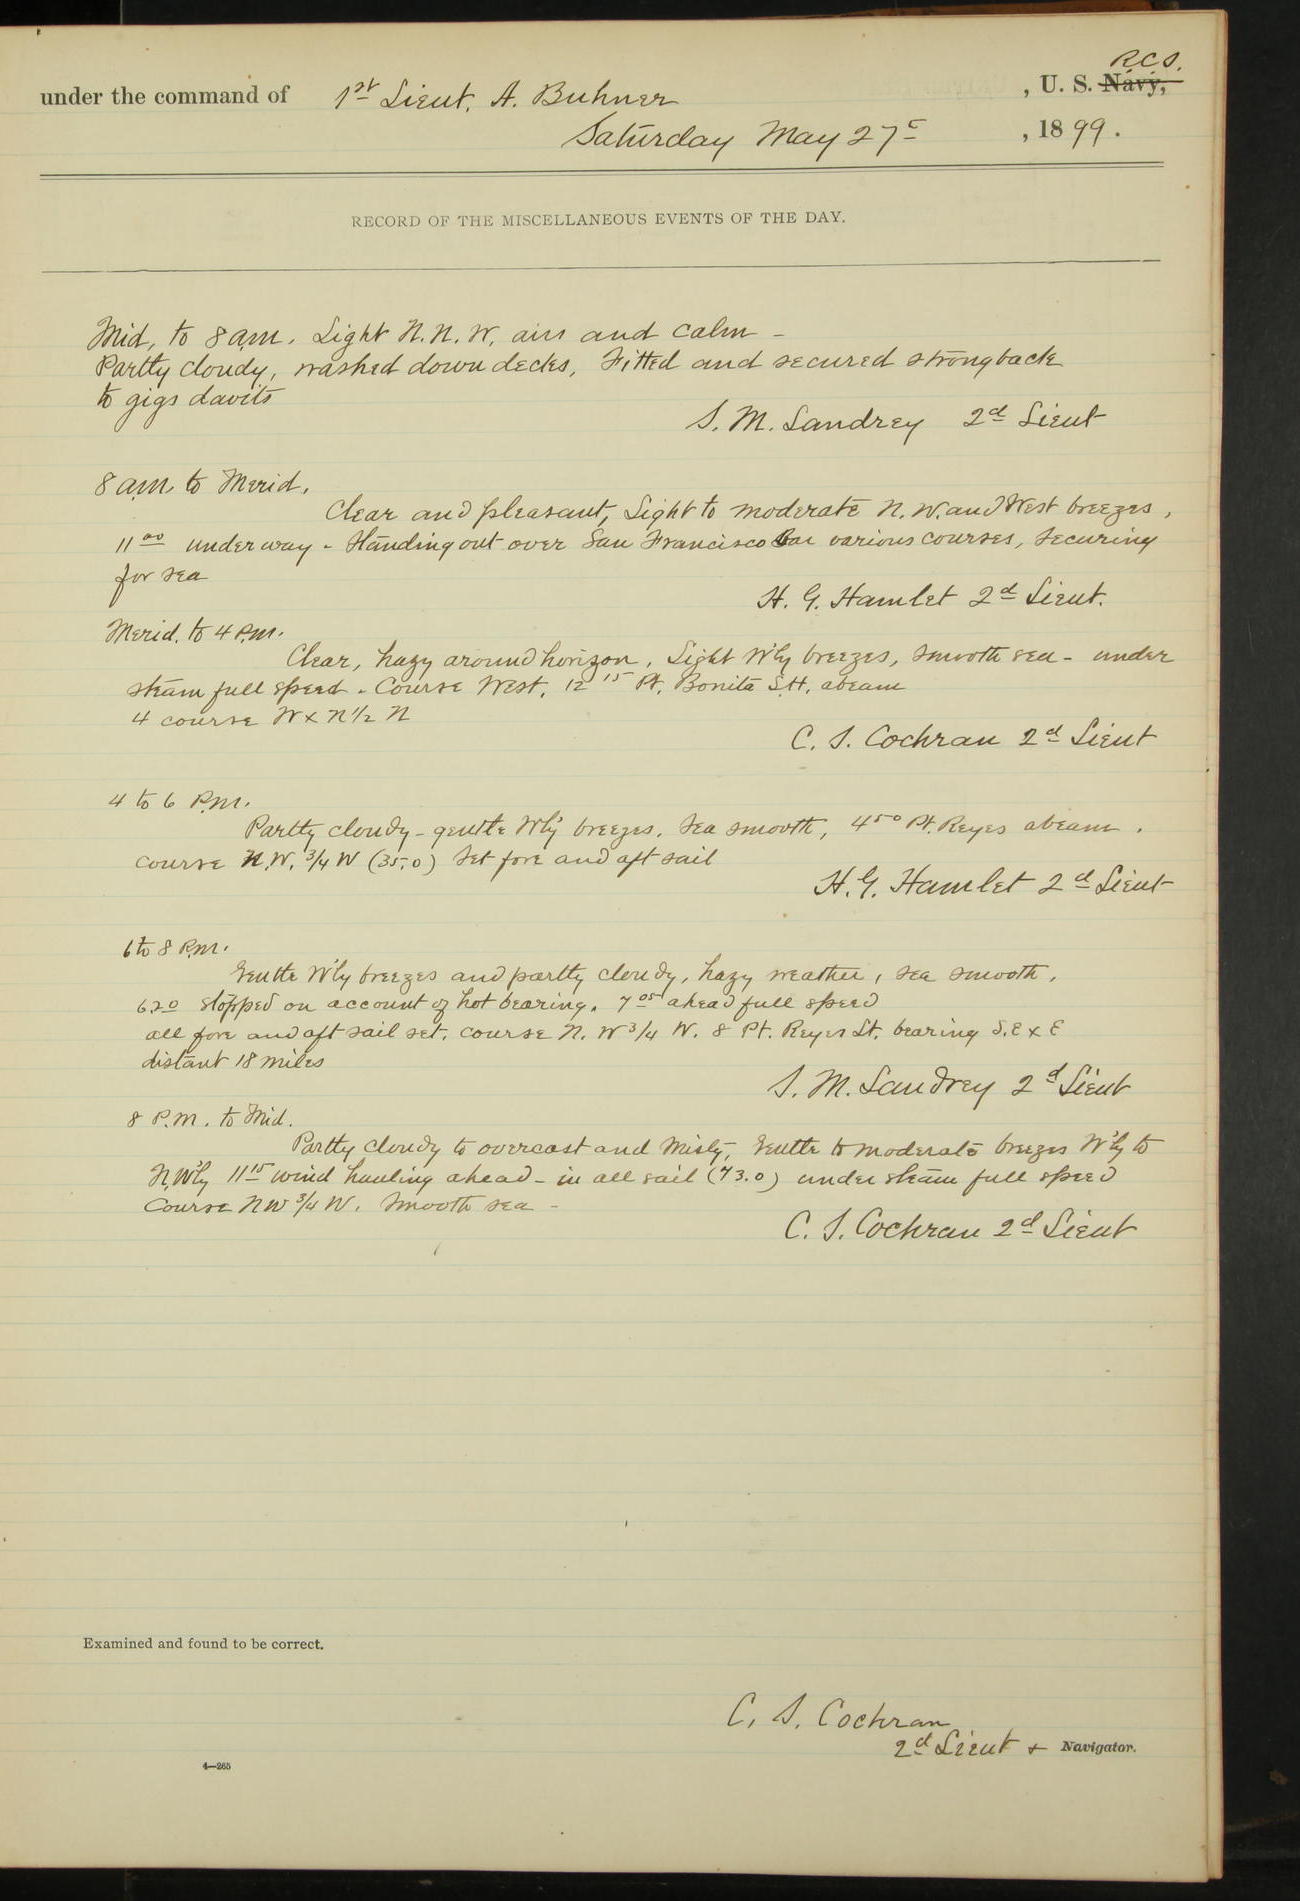 R.C.S.
under the command of 1st Lieut. A. Buhner , U. S. Navy,
Saturday May 27th , 1899.
RECORD OF THE MISCELLANEOUS EVENTS OF THE DAY.
Mid, to 8 a.m. Light N.N.W. airs and calm -
Partly cloudy, washed down decks, Fitted and secured strongback
to gigs davits
S. M. Landrey 2d Lieut
8 a.m to Merid.
Clear and pleasant, Light to moderate N.W. and West breezes,
11 00 under way - Standing out over San Francisco Bar various courses, securing
for sea
H. G. Hamlet 2d Lieut.
Merid. to 4 P.m.
Clear, hazy around horizon, Light W'ly breezes, smooth sea - under
steam full speed - Course West, 12 15 Pt. Bonita S.H. abeam
4 course W x N 1/2 N
C. S. Cochran 2d Lieut
4 to 6 P.m.
Partly cloudy - gentle W'ly breezes. Sea smooth, 4 50 Pt. Reyes abeam.
course N.W. 3/4 W (35.0) Set fore and aft sail
H. G. Hamlet 2d Lieut
6 to 8 P.m.
Gentle W'ly breezes and partly cloudy, hazy weather, sea smooth,
6 20 stopped on account of hot bearing. 7 05 ahead full speed
all fore and aft sail set. course N. W 3/4 W. 8 Pt. Reyes Lt. bearing S.E x E
distant 18 miles
S. M. Landrey 2d Lieut
8 P.m. to Mid.
Partly cloudy to overcast and Misty, Gentle to moderate breezes W'ly to
N.W'ly 11 15 wind hauling ahead - in all sail (73.0) under steam full speed
Course NW 3/4 W. Smooth sea -
C. S. Cochran 2d Lieut
Examined and found to be correct.
C. S. Cochran
2d Lieut + Navigator.
4—265